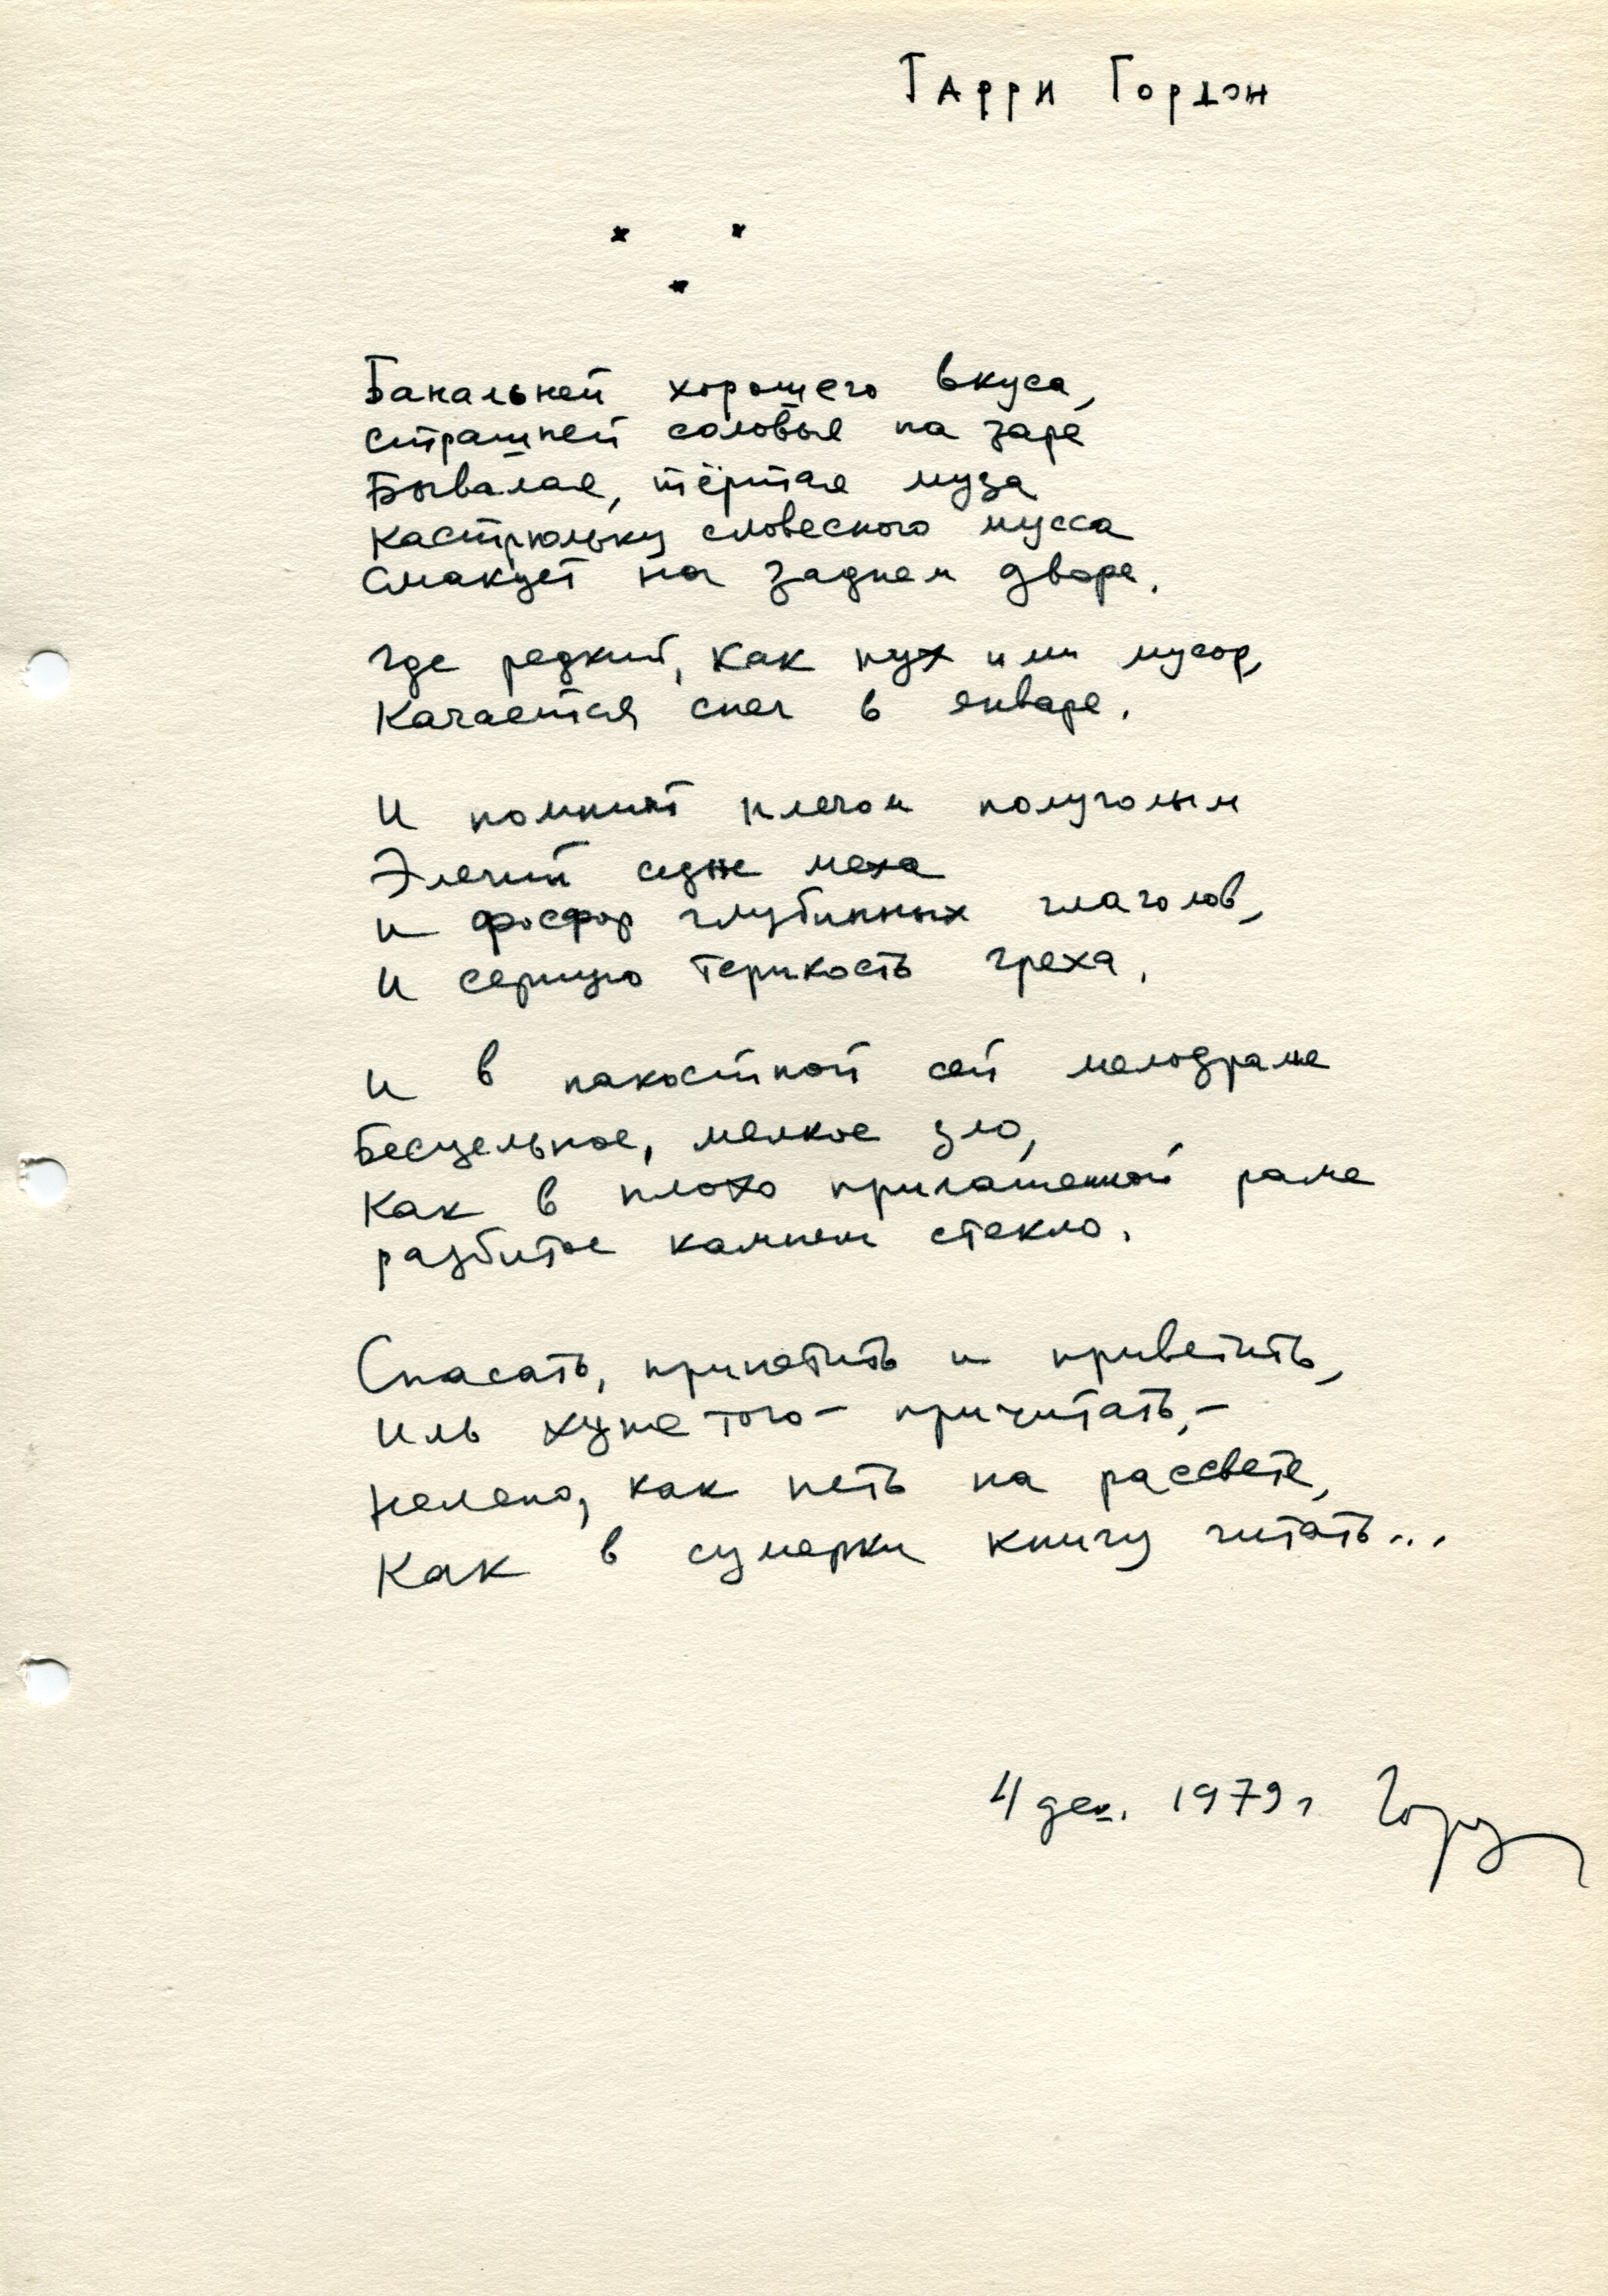 Гарри Гордон
* *
*
Банальней хорошего вкуса,
страшней соловья на заре
Бывалая, тёртая муза
Кастрюльку словесного мусса
Смакует на заднем дворе.
Где редкий, как пух или мусор,
Качается снег в январе.
И помнит плечом полуголым
Элегий седые меха
И фосфор глубинных глаголов,
И серную терпкость греха.
И в пакостной сей мелодраме
Бесцельное, мелкое зло,
Как в плохо прилаженной раме
разбитое камнем стекло.
Спасать, приветить и приветить,
Иль хуже того – причитать, –
Нелепо, как петь на рассвете,
Как в сумерки книгу читать...
4 дек. 1979 г